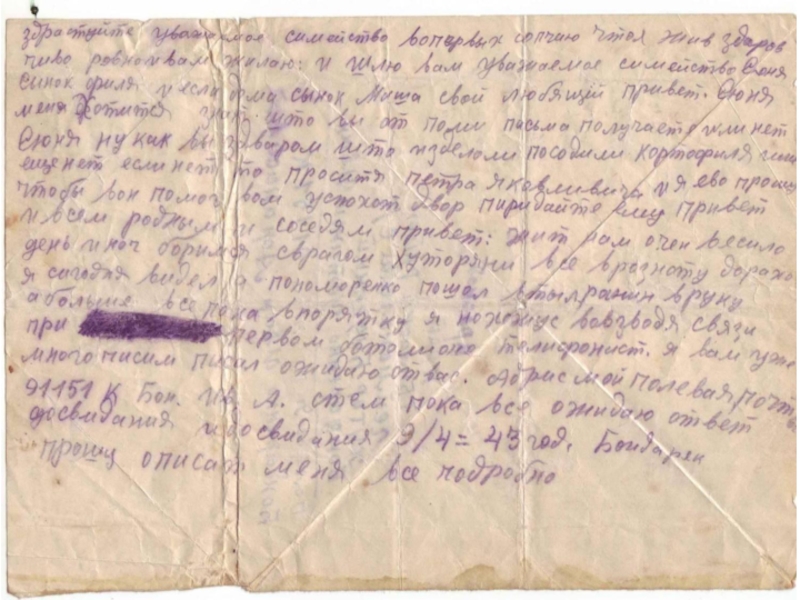 здраствуйте уважаемое симейство вопарвых сопчаю што я жив здаров
чиво ровно и вам жилаю: и шлю вам уважаемое симейство Сюня
сынок филя и если дома сынок Миша свой любящій привет. Сюня
меня хотится знат што вы от поми письма получаете или нет
Сюня ну как вы здваром што изделали посодили кортофиля или
еще нет если нет то проситя петра яковливича и я ево прошу
чтобы вон помог вам успохот двор пиридайте ему привет
и всем родным и соседям привет: жит нам очен весило
день и ноч боримся сврагом хуторяни все врозноту
я сагодня видел а пономоренко пошол втыл ранин вруку
а больше все пока впорятку я нохожус вовзводя связи
при первом ботолионе телифонист. я вам уже
много писим писал ожидаю ответ. Адрис мой полевая почт
91151 К Бон. Ив. А. стем пока все ожидаю ответ
досвидания и досвидания 9/4= 43 год. Бондарен
прошу описат меня все подробно